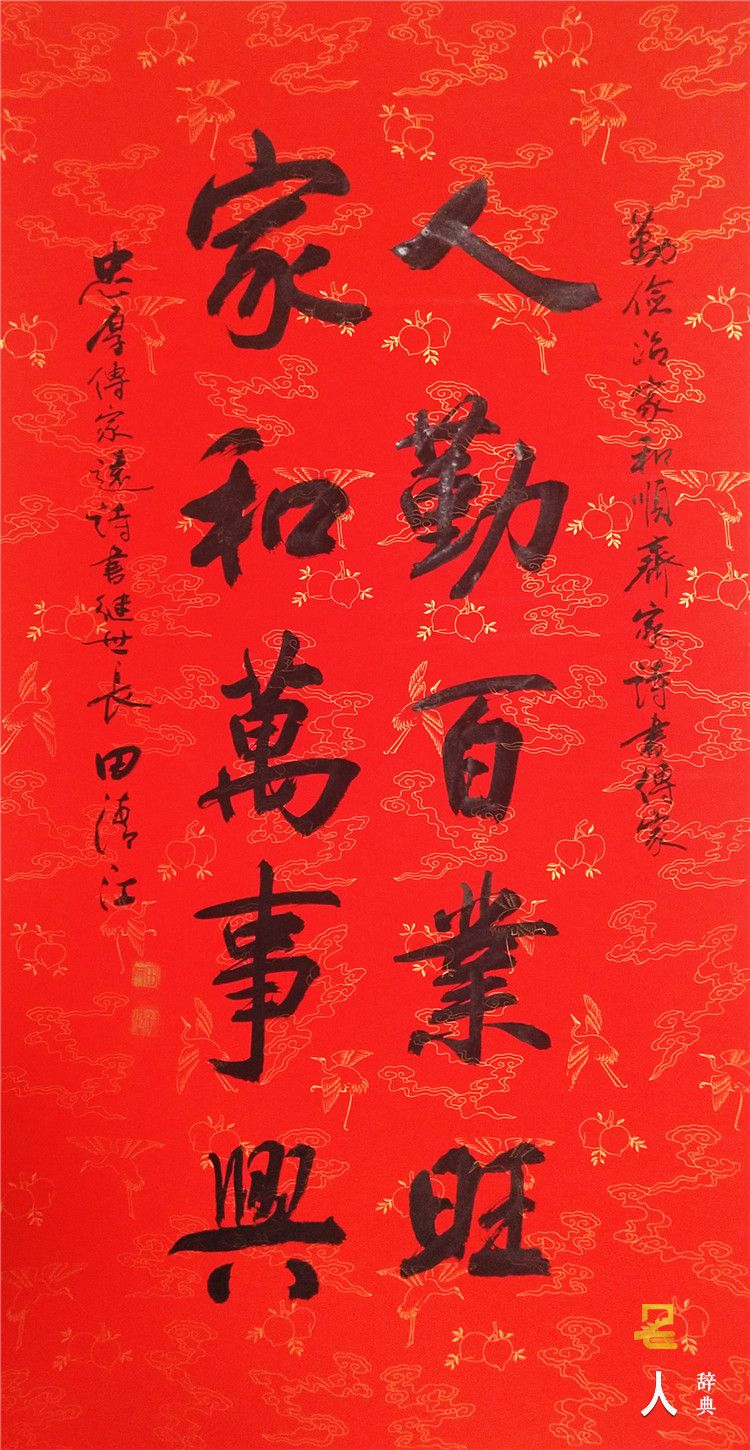 勤儉治家和順齊家詩書傳家
人勤百業旺
家和萬事興
忠厚傳家遠詩書繼世長田清江
名
人
辞典